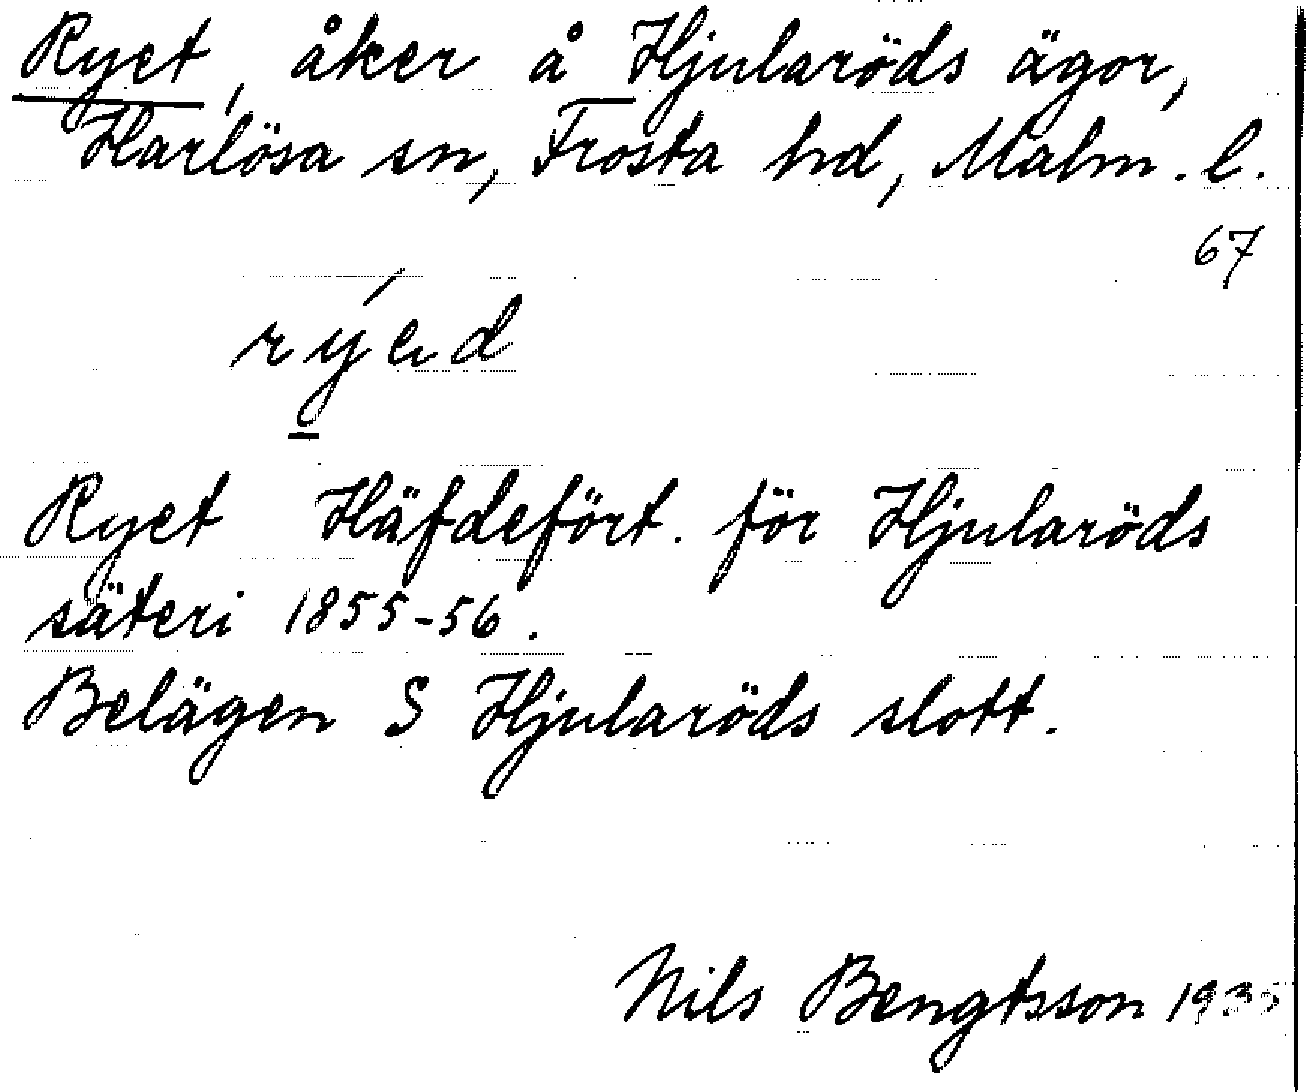 Ryet, åker å Hjularöds ägor,
Harlösa sn, Frosta hd, Malm. l.
67
rýed
Ryet Häfdefört. för Hjularöds
säteri 1855-56.
Belägen S Hjularöds slott.
Nils Bengtsson 1935